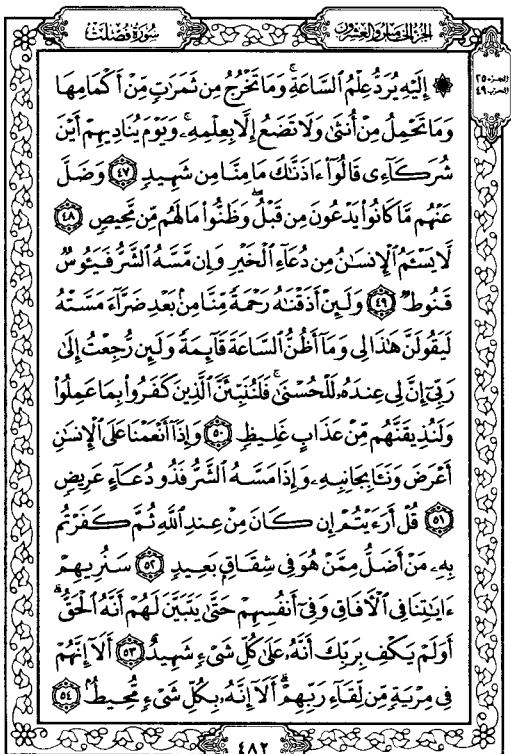 سُورَةُ فُصِّلَتْ
الجُزْءُ الخَامِسُ وَالعِشْرُونَ
الجزء ٢٥
الحزب ٤٩
۞ إِلَيْهِ يُرَدُّ عِلْمُ ٱلسَّاعَةِ ۚ وَمَا تَخْرُجُ مِن ثَمَرَٰتٍ مِّنْ أَكْمَامِهَا
وَمَا تَحْمِلُ مِنْ أُنثَىٰ وَلَا تَضَعُ إِلَّا بِعِلْمِهِۦ ۚ وَيَوْمَ يُنَادِيهِمْ أَيْنَ
شُرَكَآءِى قَالُوٓا۟ ءَاذَنَّٰكَ مَا مِنَّا مِن شَهِيدٍ ٤٧ وَضَلَّ
عَنْهُم مَّا كَانُوا۟ يَدْعُونَ مِن قَبْلُ ۖ وَظَنُّوا۟ مَا لَهُم مِّن مَّحِيصٍ ٤٨
لَّا يَسْـَٔمُ ٱلْإِنسَٰنُ مِن دُعَآءِ ٱلْخَيْرِ وَإِن مَّسَّهُ ٱلشَّرُّ فَيَـُٔوسٌ
قَنُوطٌ ٤٩ وَلَئِنْ أَذَقْنَٰهُ رَحْمَةً مِّنَّا مِنۢ بَعْدِ ضَرَّآءَ مَسَّتْهُ
لَيَقُولَنَّ هَٰذَا لِى وَمَآ أَظُنُّ ٱلسَّاعَةَ قَآئِمَةً وَلَئِن رُّجِعْتُ إِلَىٰ
رَبِّىٓ إِنَّ لِى عِندَهُۥ لَلْحُسْنَىٰ ۚ فَلَنُنَبِّئَنَّ ٱلَّذِينَ كَفَرُوا۟ بِمَا عَمِلُوا۟
وَلَنُذِيقَنَّهُم مِّنْ عَذَابٍ غَلِيظٍ ٥٠ وَإِذَآ أَنْعَمْنَا عَلَى ٱلْإِنسَٰنِ
أَعْرَضَ وَنَـَٔا بِجَانِبِهِۦ وَإِذَا مَسَّهُ ٱلشَّرُّ فَذُو دُعَآءٍ عَرِيضٍ
٥١ قُلْ أَرَءَيْتُمْ إِن كَانَ مِنْ عِندِ ٱللَّهِ ثُمَّ كَفَرْتُم
بِهِۦ مَنْ أَضَلُّ مِمَّنْ هُوَ فِى شِقَاقٍۭ بَعِيدٍ ٥٢ سَنُرِيهِمْ
ءَايَٰتِنَا فِى ٱلْءَافَاقِ وَفِىٓ أَنفُسِهِمْ حَتَّىٰ يَتَبَيَّنَ لَهُمْ أَنَّهُ ٱلْحَقُّ ۗ
أَوَلَمْ يَكْفِ بِرَبِّكَ أَنَّهُۥ عَلَىٰ كُلِّ شَىْءٍ شَهِيدٌ ٥٣ أَلَآ إِنَّهُمْ
فِى مِرْيَةٍ مِّن لِّقَآءِ رَبِّهِمْ ۗ أَلَآ إِنَّهُۥ بِكُلِّ شَىْءٍ مُّحِيطٌۢ ٥٤
٤٨٢